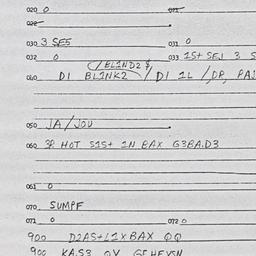 020 0 021
022
030 3 SE5 031 0
032 0 033 1S+ SEJ 3 S
(/BLIND2 $
040 D1 BLINK2 / D1 1L /DP, PAJ
050 JA/JOU
060 3P HOT S1S+ 1N BAX G3BA.D3
061 0
070 SUMPF
071 0 072 0
900 D2AS+L1XBAX QQ
900 KA.S3 OV GEHEVSN